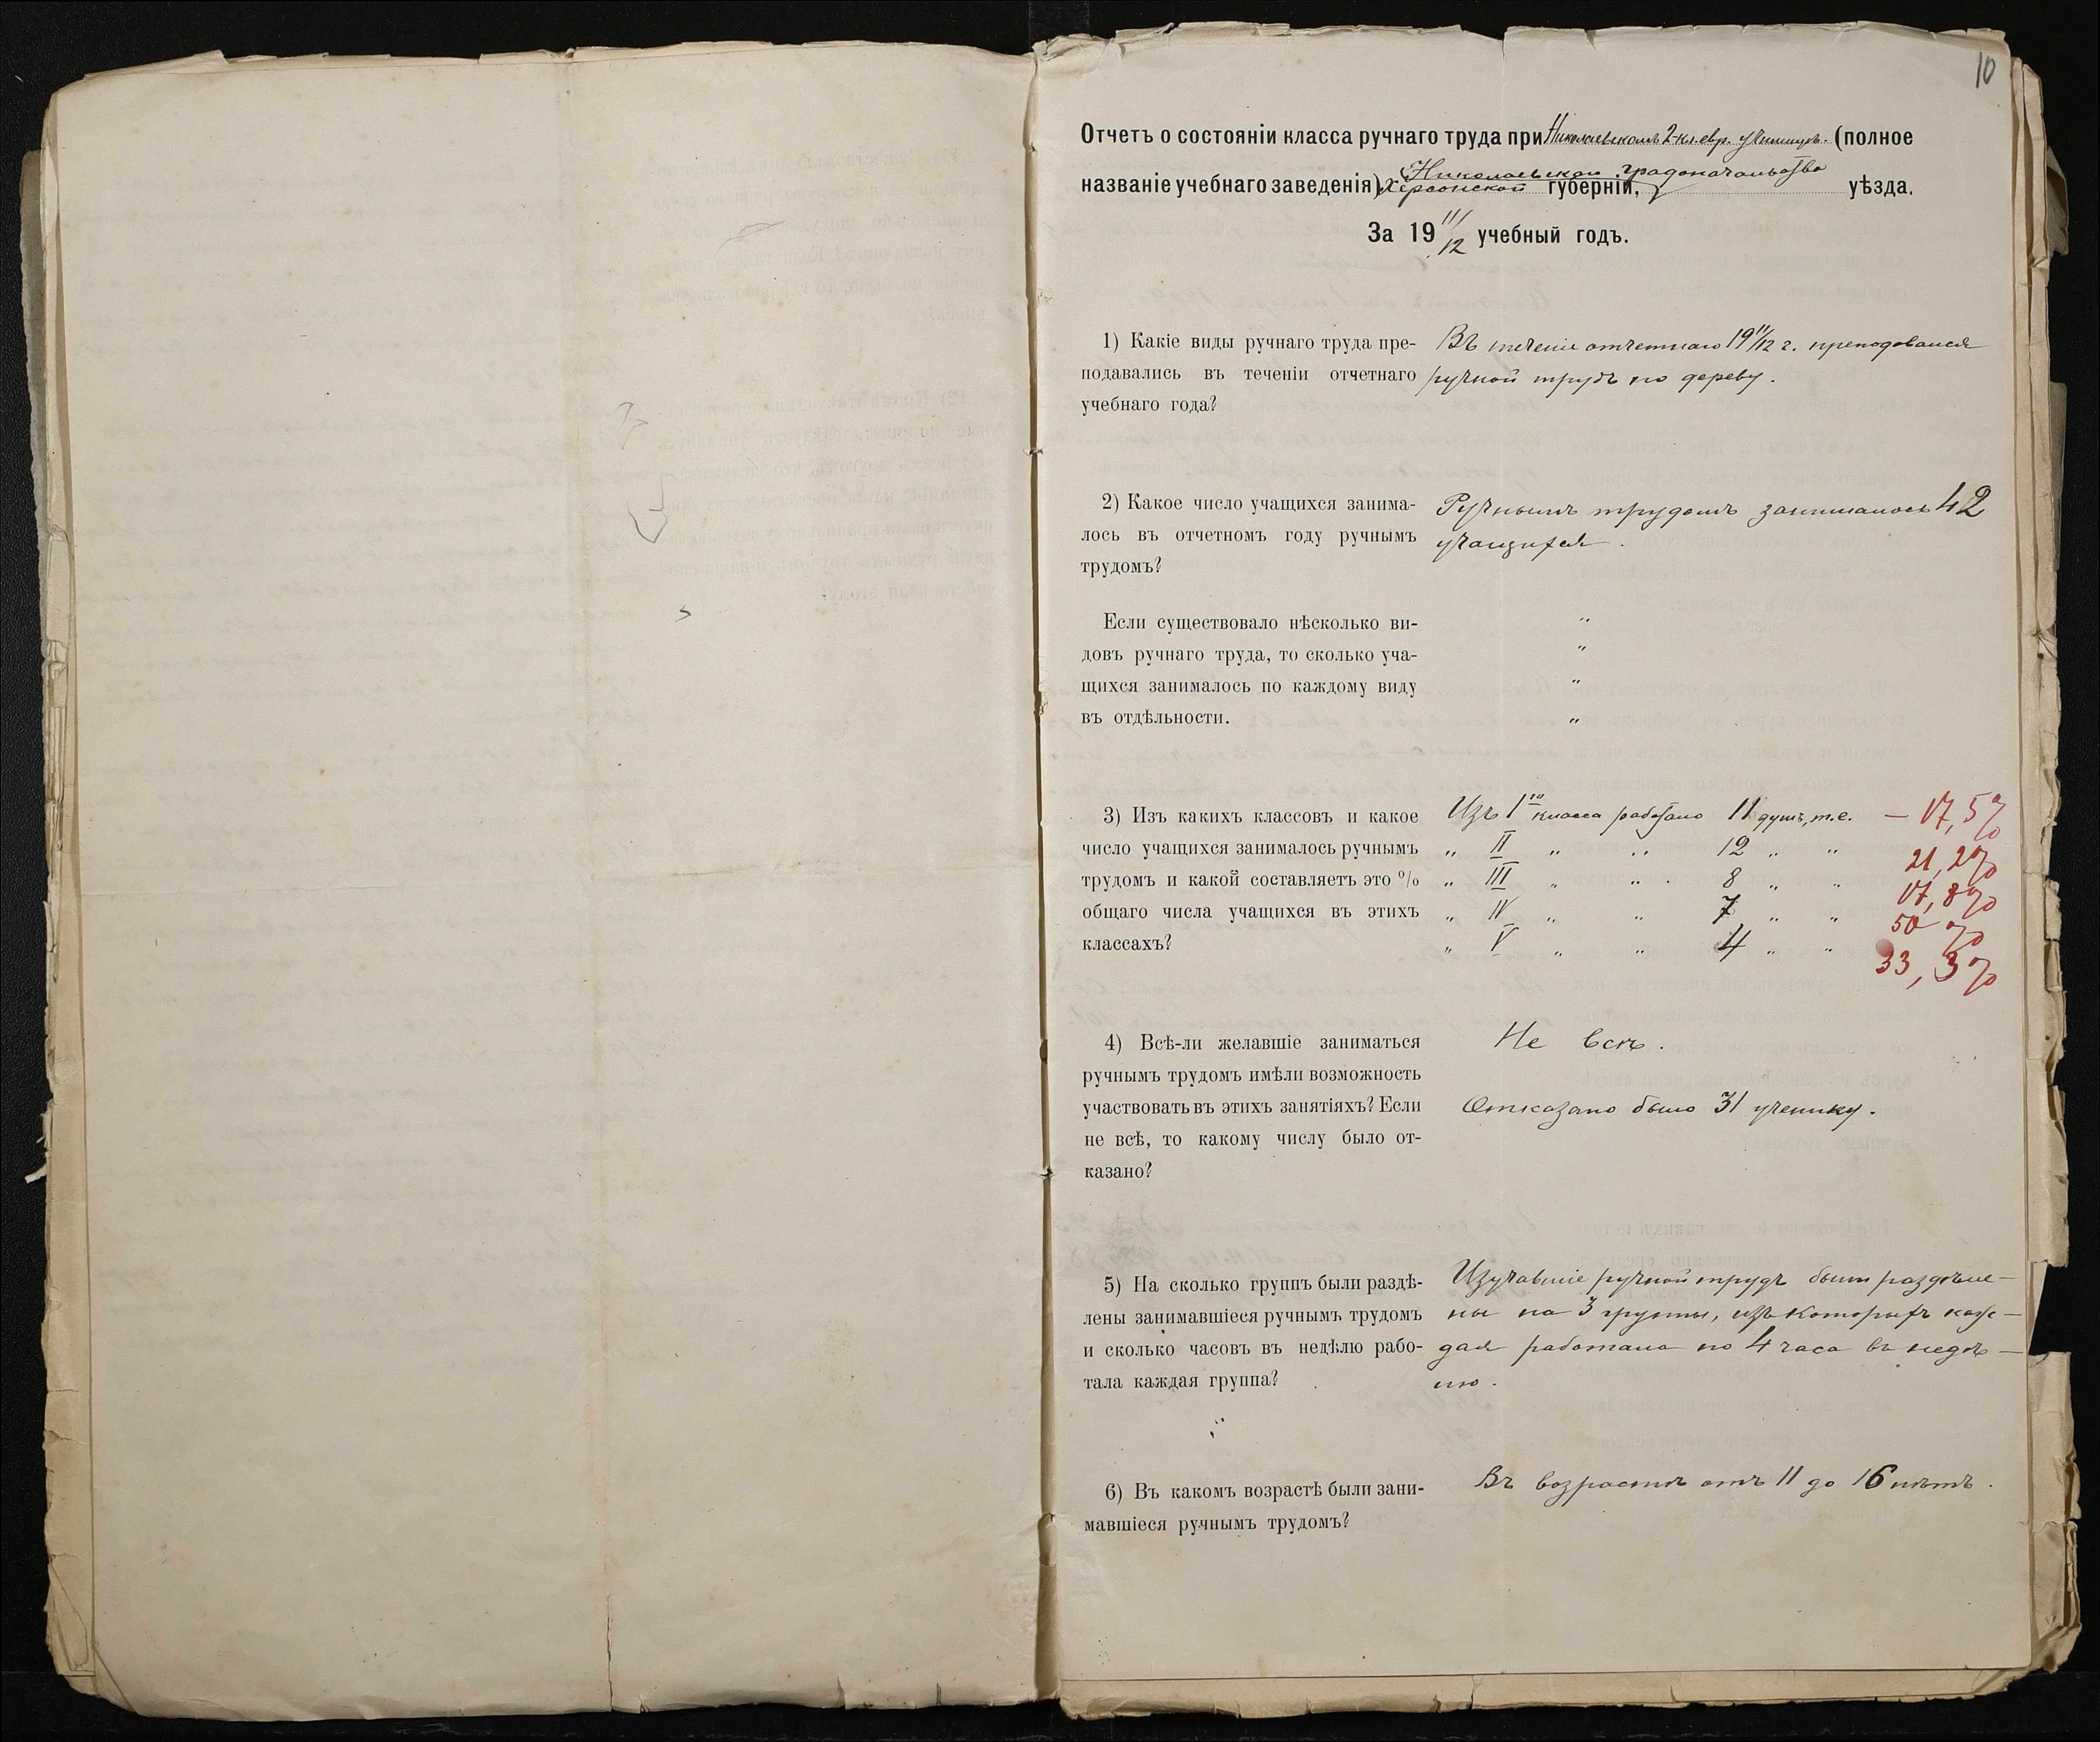 10
Отчетъ о состояніи класса ручнаго труда при Николаевскомъ 2-кл. евр. училищѣ. (полное
Николаевскаго градоначальства
названіе учебнаго заведенія) Херсонской губерніи, уѣзда.
За 19 11/12 учебный годъ.
1) Какіе виды ручнаго труда пре-
подавались въ теченіи отчетнаго
учебнаго года?
Въ теченіе отчетнаго 19 11/12 г. преподавался
ручной трудъ по дереву.
2) Какое число учащихся занима-
лось въ отчетномъ году ручнымъ
трудомъ?
Ручнымъ трудомъ занималось 42
учащихся.
Если существовало нѣсколько ви-
довъ ручнаго труда, то сколько уча-
щихся занималось по каждому виду
въ отдѣльности.
"
"
"
"
3) Изъ какихъ классовъ и какое
число учащихся занималось ручнымъ
трудомъ и какой составляетъ это %
общаго числа учащихся въ этихъ
классахъ?
Изъ 1го класса работало 11 душъ, т.е. — 17,5%
" II " " 12 " " 21,2%
" III " " 8 " " 17,8%
" IV " " 7 " " 50%
" V " " 4 " " 33,3%
4) Всѣ-ли желавшіе заниматься
ручнымъ трудомъ имѣли возможность
участвовать въ этихъ занятіяхъ? Если
не всѣ, то какому числу было от-
казано?
Не всѣ.
Отказано было 31 ученику.
5) На сколько группъ были раздѣ-
лены занимавшіеся ручнымъ трудомъ
и сколько часовъ въ недѣлю рабо-
тала каждая группа?
Изучавшіе ручной трудъ были раздѣле-
ны на 3 группы, изъ которыхъ каж-
дая работала по 4 часа въ недѣ-
лю.
6) Въ какомъ возрастѣ были зани-
мавшіеся ручнымъ трудомъ?
Въ возрастѣ отъ 11 до 16 лѣтъ.